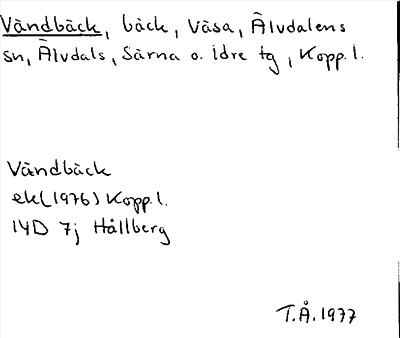 Vändbäck, bäck, Våsa, Älvdalens
sn, Älvdals, Särna o. Idre tg, Kopp. l.
Vändbäck
ek (1976) Kopp. l.
14D 7j Hållberg
T.Å. 1977